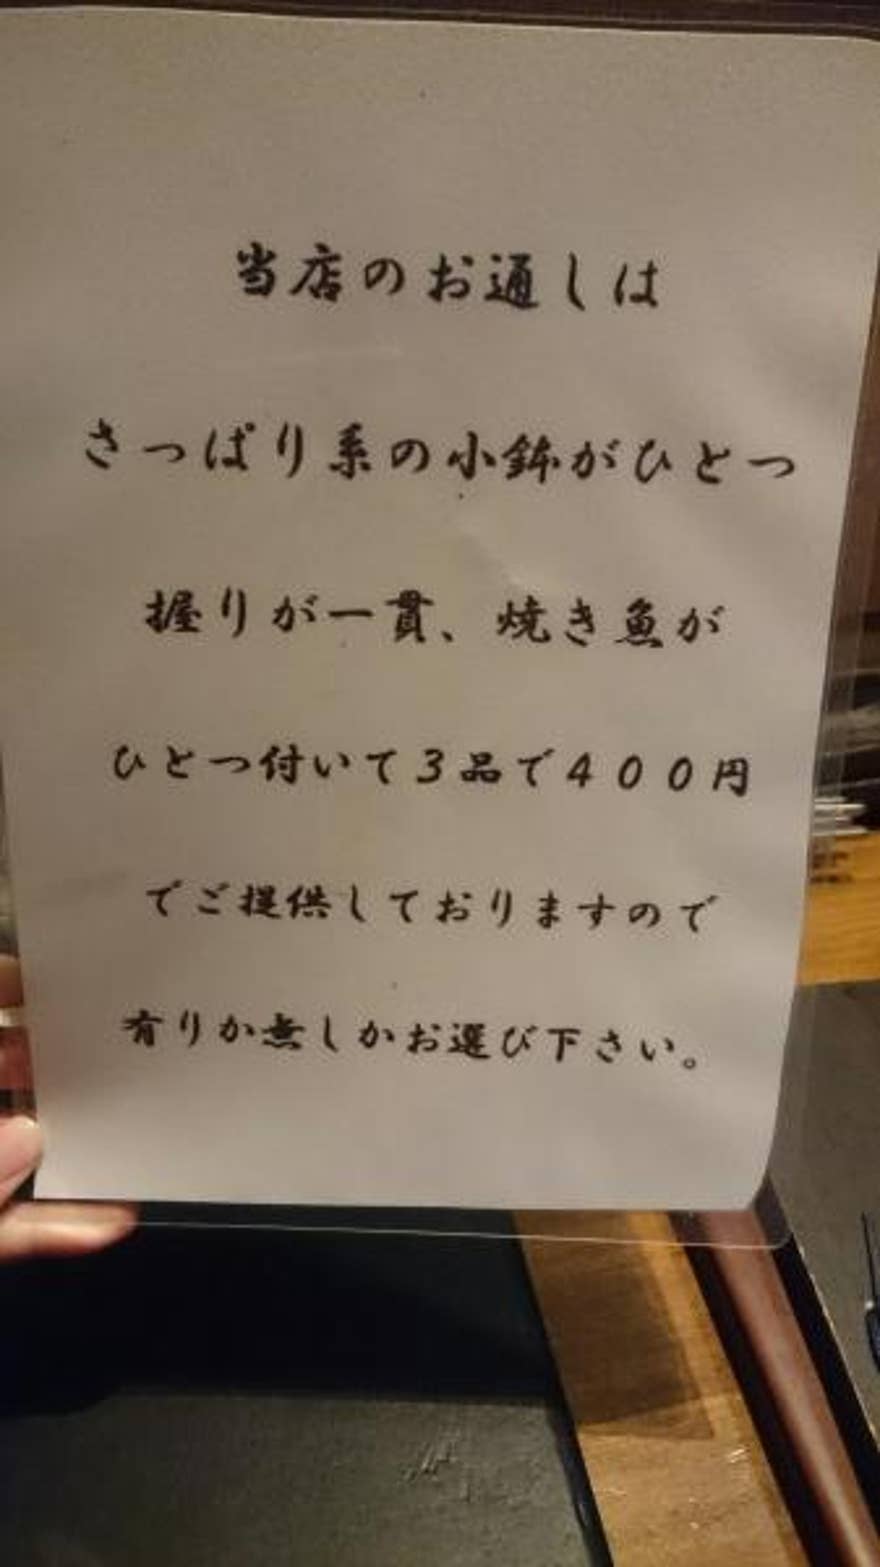 当店のお通しは
さっぱり系の小鉢がひとつ
握りが一貫、焼き魚が
ひとつ付いて３品で４００円
でご提供しておりますので
有りか無しかお選び下さい。